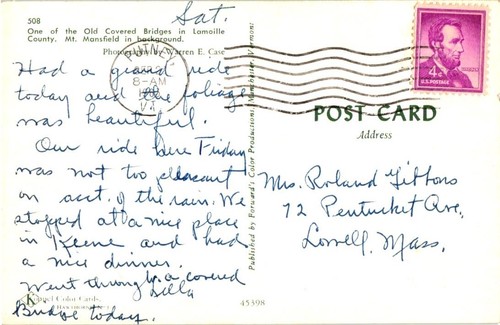 Sat.
508
One of the Old Covered Bridges in Lamoille
County. Mt. Mansfield in background.
Photograph by Warren E. Case
PUTNEY
8-AM
VT
4¢
U.S. POSTAGE
Had a grand ride
today and the foliage
was beautiful.
Our ride here Friday
was not too pleasant
on acct. of the rain. We
stopped at a nice place
in Keene and had
a nice dinner.
Went through a covered
Bridge today.
Della
POST CARD
Address
Mrs. Roland Gibbons
72 Pentucket Ave,
Lowell, Mass.
Published by Forward's Color Productions, Manchester, Vermont
Color Cards
45398